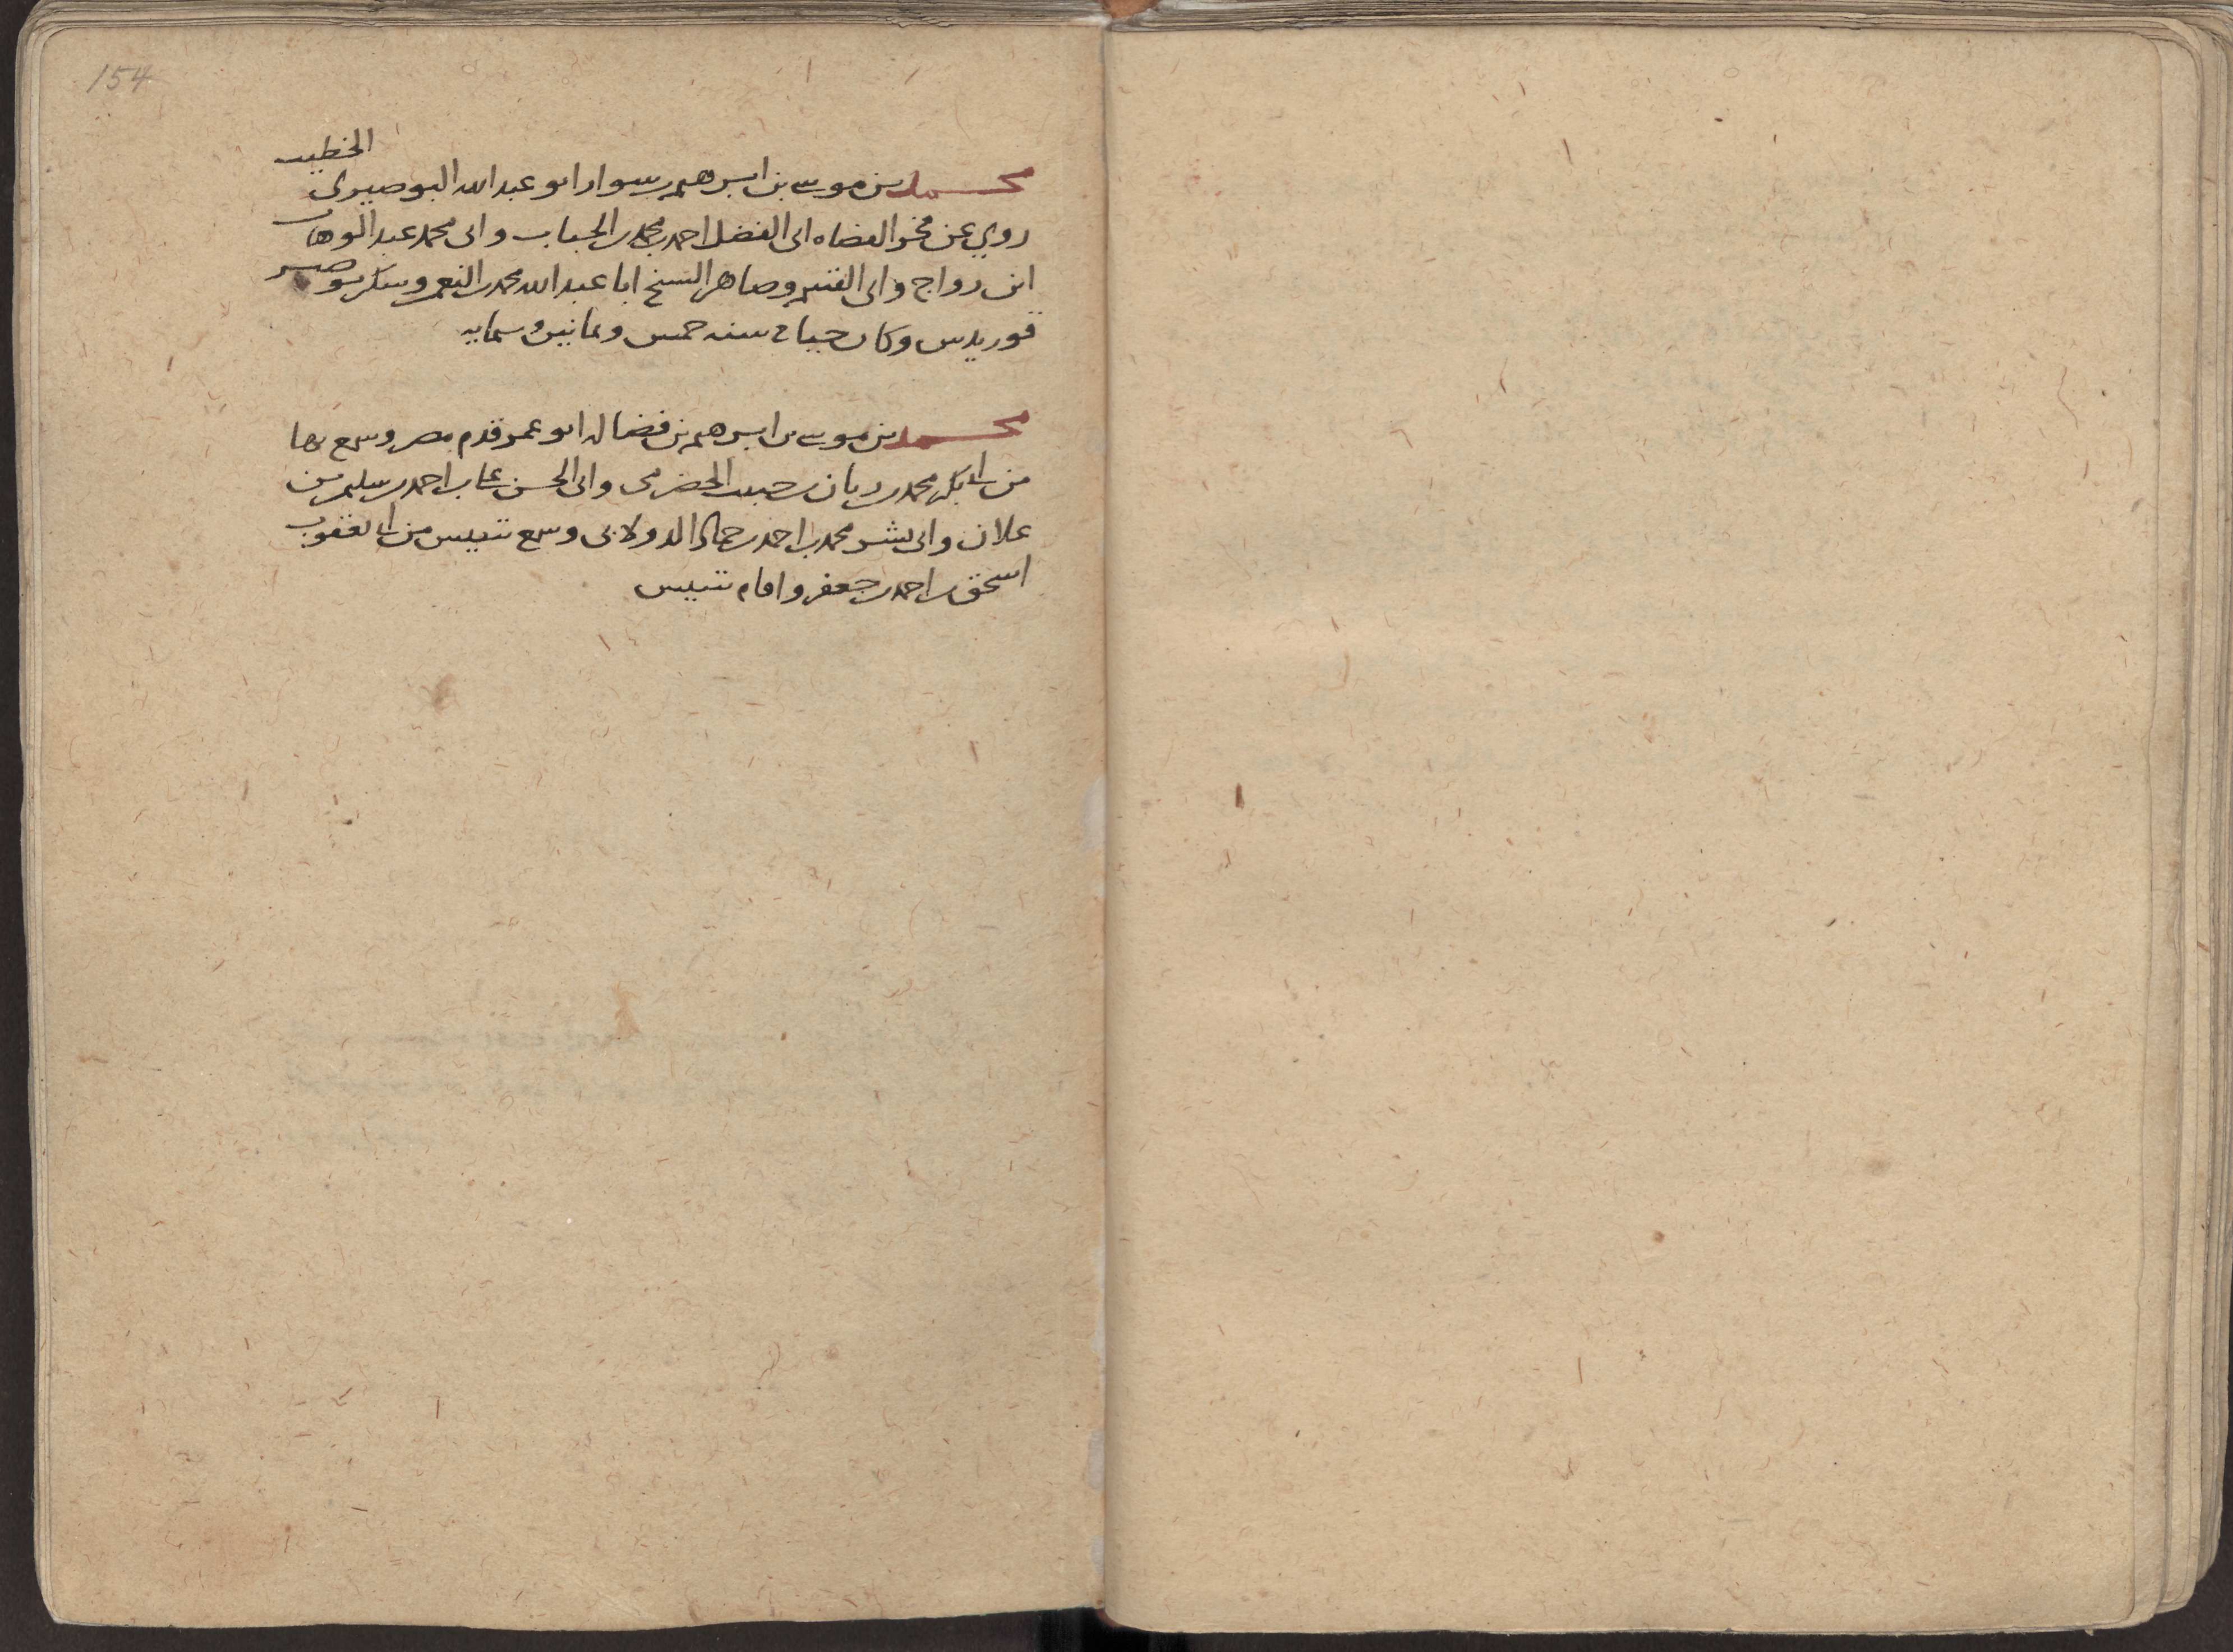 154
الخطيب
محمد بن موسى بن ابرهيم بن سوار ابو عبد الله البوصيري
روي عن فخر القضاه ابى الفضل احمد بن محمد بن الحباب وابى محمد عبد الوهاب
ابن رواج وابى القسم وصاهر الشيخ ابا عبد الله محمد بن النعمن وسكن بوصير
قوريدس وكان حيا في سنه خمس وثمانين وستمايه
محمد بن موسى بن ابرهيم بن فضاله ابو عمر قدم مصر وسمع بها
من ابى بكر محمد بن ريان بن حبيب الحضرمى وابى الحسن على بن احمد بن سليمن
علان وابى بشر محمد بن احمد بن حماد الدولابى وسمع بتنيس من ابى يعقوب
اسحق بن احمد بن جعفر واقام بتنيس